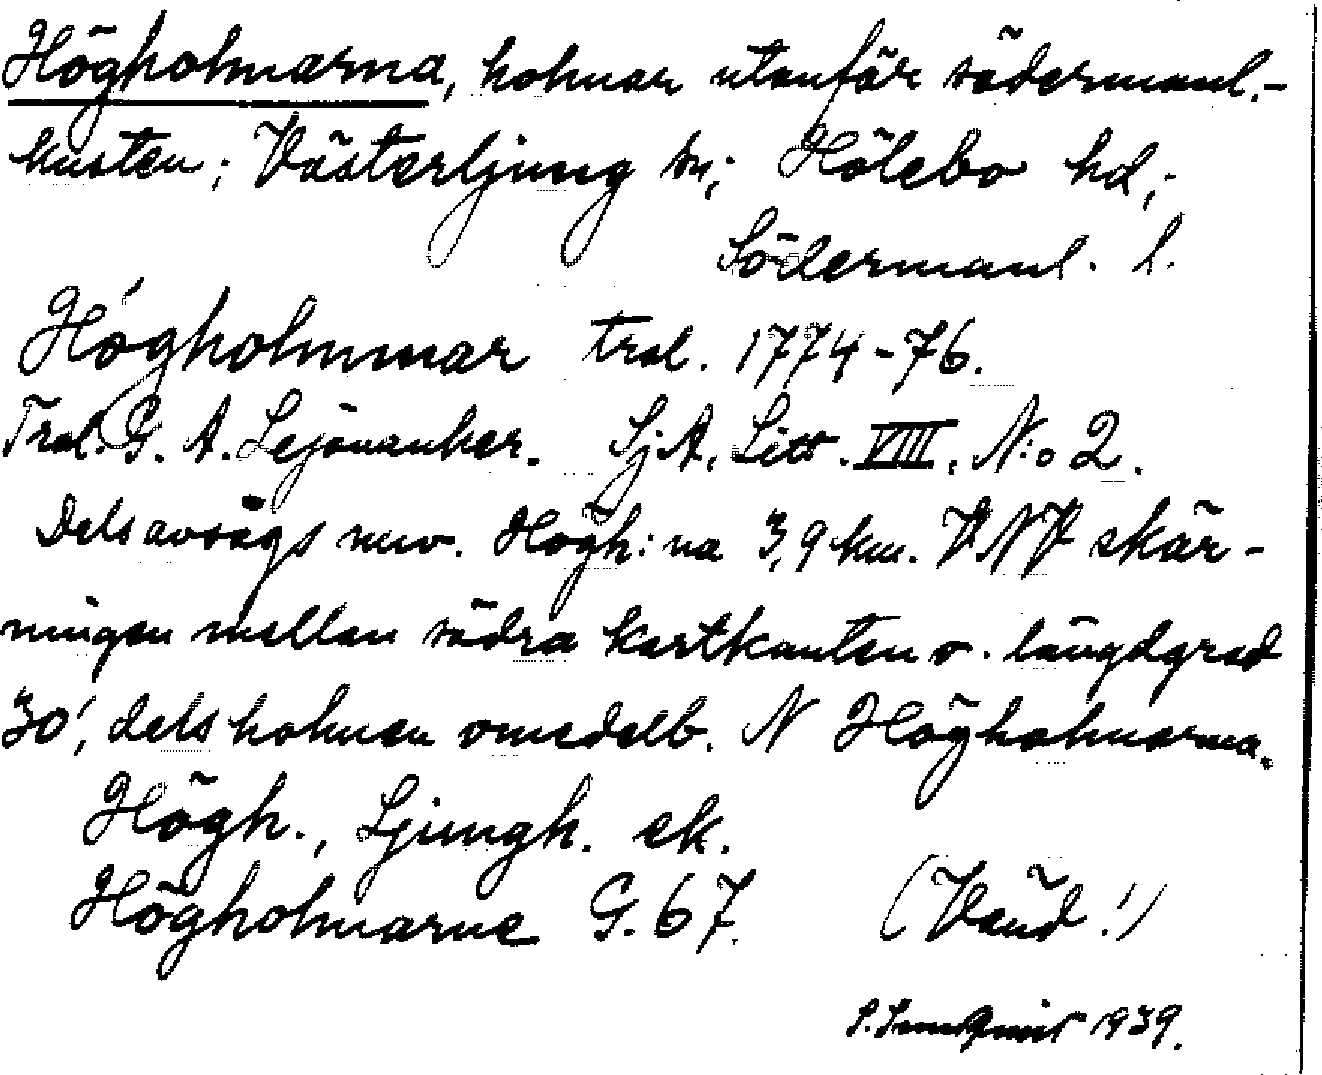 Högholmarna, holmar utanför södermanl.-
kusten; Västerljung sn; Hölebo hd;
Södermanl. l.
Högholmmar trol. 1774-76.
Trol. G. A. Lejonanker. SjA, Litt. VIII, N:o 2.
Dels avsågs nuv. Högh:na 3,9 km. VNV skär-
ningen mellan södra kartkanten o. längdgrad
30', dels holmen omedelb. N Högholmarna.
Högh., Ljungh. ek.
Högholmarne G. 67. (Vänd!)
1939.